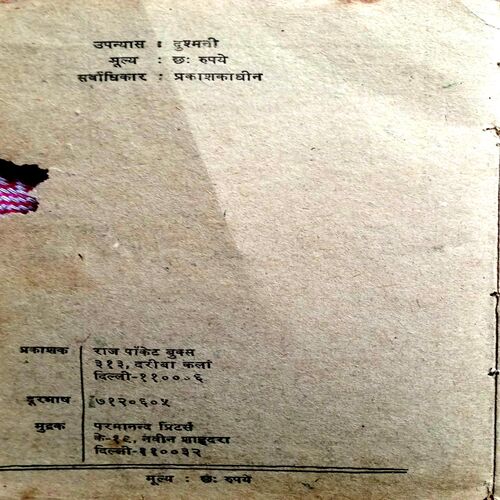 उपन्यास : दुश्मनी
मूल्य : छः रुपये
सर्वाधिकार : प्रकाशकाधीन
प्रकाशक राज पॉकेट बुक्स
३१३, दरीबा कलां
दिल्ली-११०००६
दूरभाष ७१२०६०५
मुद्रक परमानन्द प्रिंटर्स
के-१९, नवीन शाहदरा
दिल्ली-११००३२
मूल्य : छः रुपये